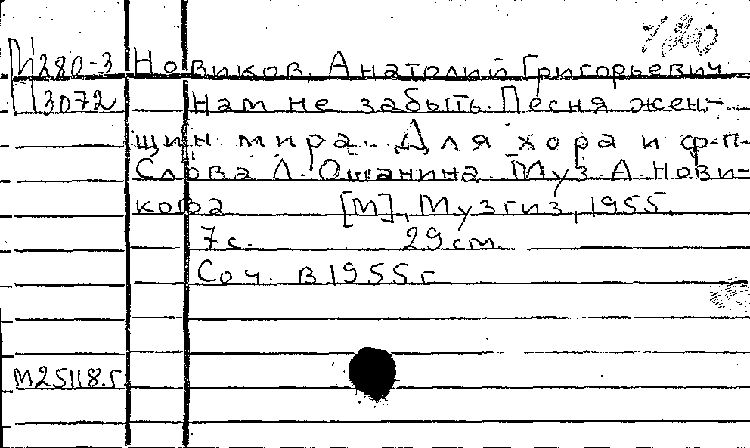 М280-3 Новиков, Анатолий Григорьевич
П3072 Нам не забыть. Песня жен-
щин мира. Для хора и ф-п.
Слова Л. Ошанина Муз. А. Нови-
кова [М], Музгиз, 1955.
7 с. 29 см.
Соч. в 1955 г
М25118.г